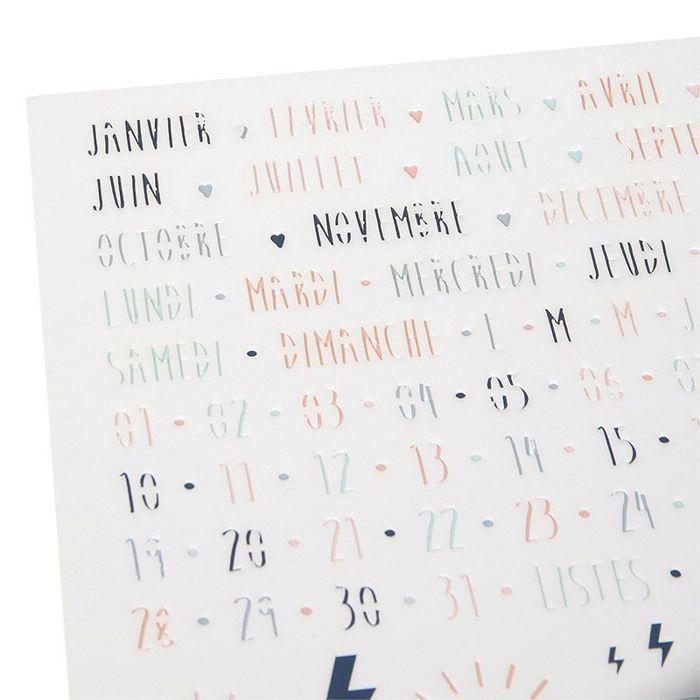 JANVIER FEVRIER MARS AVRIL
JUIN JUILLET AOUT SEPTE
OCTOBRE NOVEMBRE DÉCEMBRE
LUNDI • MARDI • MERCREDI • JEUDI •
SAMEDI • DIMANCHE • L • M • M • J
01 • 02 • 03 • 04 • 05 • 06 • 0
10 • 11 • 12 • 13 • 14 • 15 •
19 • 20 • 21 • 22 • 23 • 24 •
28 • 29 • 30 • 31 • LISTES •